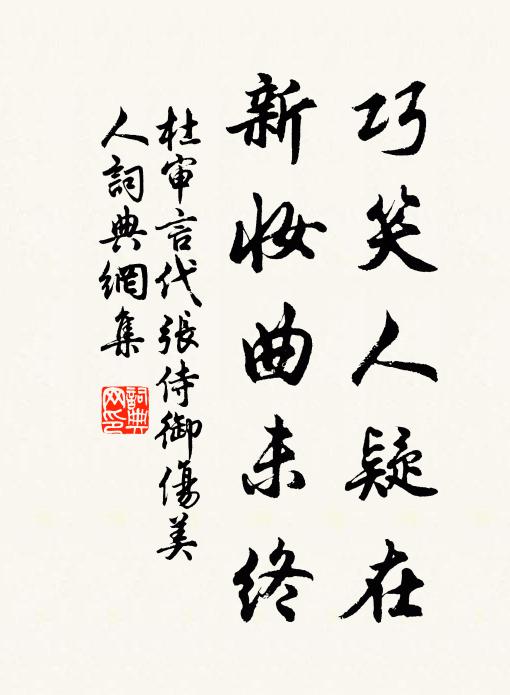 巧笑人疑在
新妝曲未終
杜审言代張侍御傷美
人詞典網集
詞典
网印